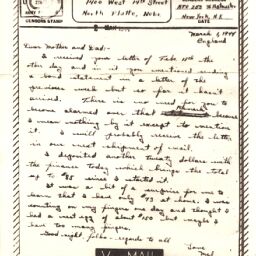 1400 West 14th Street
North Platte, Nebr.
CENSOR'S STAMP
March 1, 1944
England
Dear Mother and Dad:
I received your letter of Feb. 12th the
other day and in it you mentioned sending
a bond statement in a letter of the
previous week but so far it hasn't
arrived. There is no need for you to
become alarmed over that because
I mean nothing by it except to mention
it. I will probably receive the letter
in our next shipment of mail.
I deposited another twenty dollars with
the finance today which brings the total
up to $85 since I started it.
It was a bit of a surprise for me to
learn that I have only $93 at home. I was
counting on my fingers one day and thought I
had a nest egg of about $150 but maybe I
have too many fingers.
Good night folks - regards to all
Love
V-MAIL